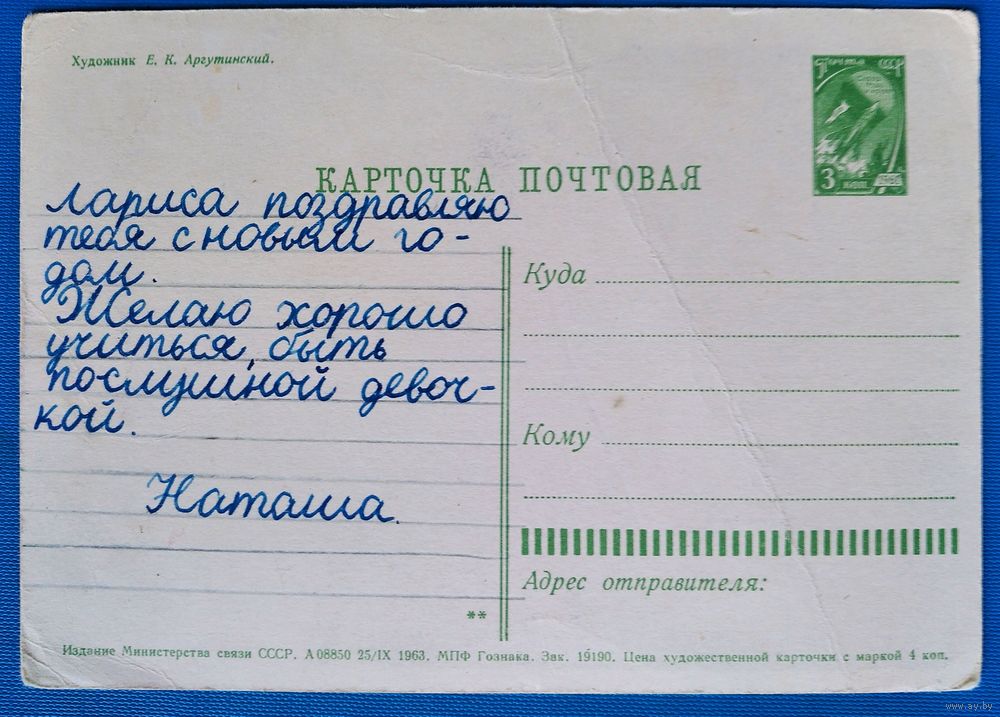 Художник Е. К. Аргутинский.
ПОЧТА СССР
3 коп.
КАРТОЧКА ПОЧТОВАЯ
Лариса поздравляю
тебя с новым го-
дом.
Желаю хорошо
учиться, быть
послушной девоч-
кой.
Наташа.
Куда
Кому
Адрес отправителя:
**
Издание Министерства связи СССР. А 08850 25/IX 1963. МПФ Гознака. Зак. 19190. Цена художественной карточки с маркой 4 коп.
www.ay.by